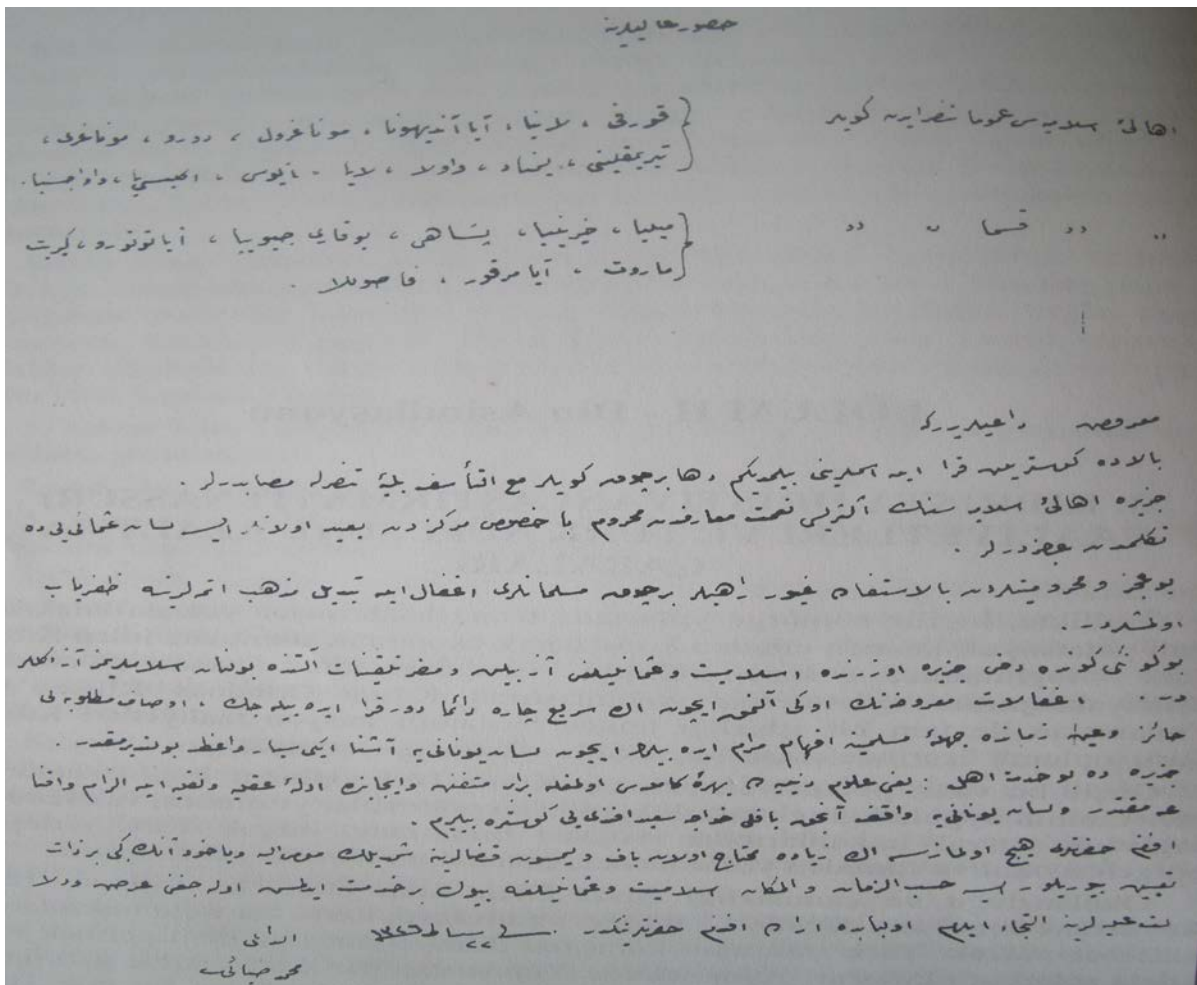 حضور عالیلرینه
اهالئ اسلامیه سی عموما تنصر ایدن کویلر
قورفی ، لانیا ، آیا آندیهونا ، موناغرول ، دورو ، موناغری ،
تیریمقلینی ، ، واولا ، لایا ،
" " قسما " "
میلیا ، خیرینیا ، پستاهی ، بوقای جیوییا ، آیا توتورو ، کریت
ماروت ، آیا مرقور ، فاصولا .
معروض داعیلریدرکه
بالاده کوستریلن قرا ایله اسملرینی بیلمدیکم دها برچوق کویلر مع التأسف بتون تنصرله مصابدرلر .
جزیره اهالئ اسلامیه سنک اکثریسی نعمت معارفدن محروم با خصوص مرکزدن بعید اولانلر ایسه لسان عثمانی یی ده
تکلمدن عاجزدرلر .
بو عجز و محرومیتلردن بالاستفاده غیور راهبلر برچوق مسلمانلری اغفال ایله تبدیل مذهب اتدرلرینه ظفریاب
اولمشلردر .
بوکونکی کونده دخی جزیره اوزرنده اسلامیت وعثمانیلغی آز بیلن و مضر تلقینات آلتنده بولنان اسلاملریمز آز دکلدر
در . معروضه نک اوکی آلنمق ایچون اک سریع چاره دائما دور قرا ایده بیله جک ، اوصاف مطلوبه یی
حائز وعین زمانده جهلۀ مسلمینه افهام مرام ایده بیلمک ایچون لسان یونانی یه آشنا ایکی سیار واعظ بولندیرمقدر .
جزیره ده بو خدمته اهل ، یعنی علوم دینیه ده بهرۀ کامله سی اولمغله برابر متفنن وایجابنده ادلۀ عقلیه ونقلیه ایله الزام واقنا
عه مقتدر ولسان یونانی یه واقف آنجق بافلی خواجه سعید افندی یی کوستره بیلیرم .
افندم حضرتلری هیچ اولمازسه اک زیاده محتاج اولان باف و لیمسون قضالرینه شمدیلک مومی الیه ویاخود آنک کبی بر ذات
تعیین بیوریلور ایسه حسب الزمان والمکان اسلامیت وعثمانیلغه بیوک بر خدمت ایدلمش اوله جغنی عرض و دلا
لت علیه لرینه التجاء ایلرم اولبابده اراده افندم حضرتلرینکدر . فی ٢٢ شباط ١٣٢٦
الداعی
محمد ضیائی